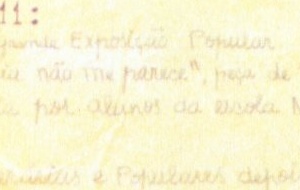 11:
grande Exposição Popular
não me parece", peça de
por alunos da escola
e Populares depois